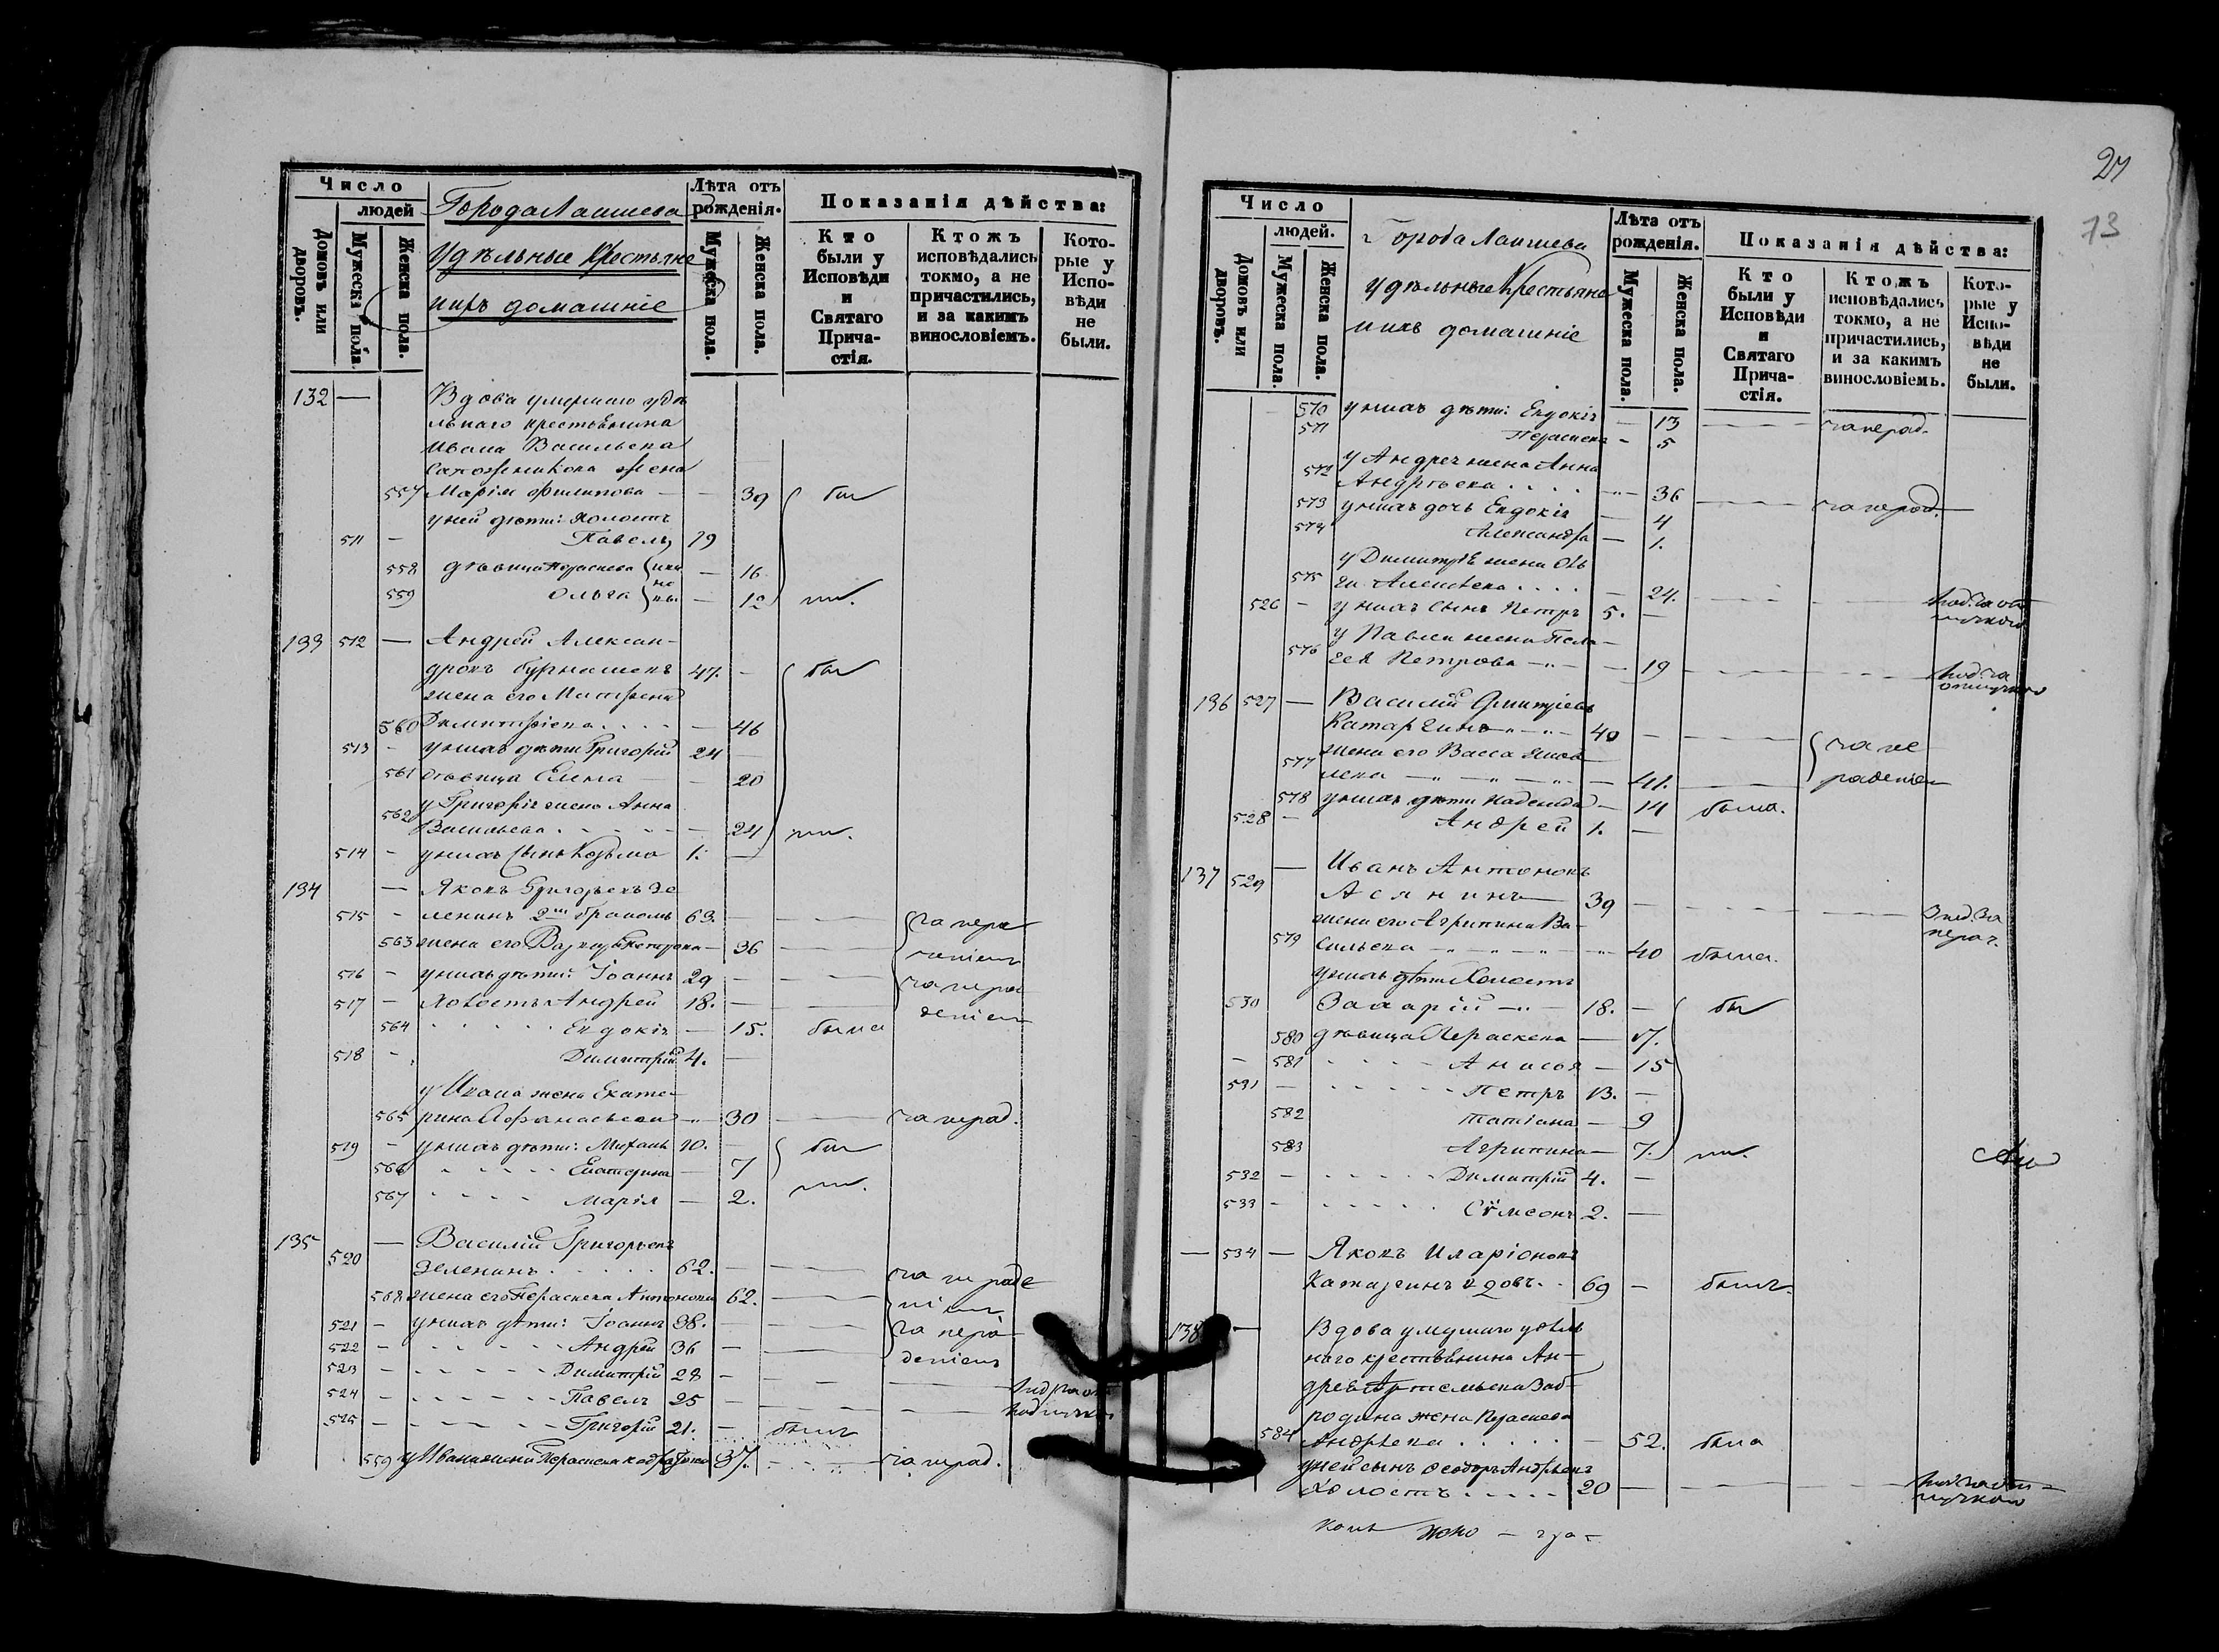 Число
людей
Домовъ или дворовъ.
Мужеска пола.
Женска пола.
Города Лаишева
Удѣльные Крестьяне
и ихъ домашніе
Лѣта отъ рожденія.
Мужеска пола.
Женска пола.
Показанія дѣйства:
Кто были у Исповѣди и Святаго Прича-стія.
Ктожъ исповѣдались токмо, а не причастились, и за какимъ винословіемъ.
Кото-рые у Испо-вѣди не были.
132 — Вдова умершаго удѣ
льнаго крестьянина
Ивана Васильева
Сапожникова жена
557 Марія Филипова — — 39 бы
у ней дѣти: Холостъ
511 — Павелъ 19
558 дѣвица Параскева — 16
559 Ольга — 12 ли.
133 512 — Андрей Алексан-
дровъ Бурнашевъ 47. — бы
жена его Матрена
560 Димитріева — 46
513 — у нихъ дѣти Григорій 24
561 дѣвица Елена — 20
у Григорія жена Анна
562 Васильева — 24 ли.
514 — у нихъ сынъ Козьма 1. —
134 — Яковъ Григорьевъ Зе
515 — ленинъ 2мъ бракомъ 63. — — за нера
563 жена его Петрова — 36 — деніем
516 — у нихъ дѣти: Іоаннъ 29 — — за нера
517 — Холостъ Андрей 18. — — деніем
564 Евдокія — 15. была
518 — Димитрій 4. —
у Ивана жена Екате-
565 рина Афанасьева — 30 — за нерад.
519 — у нихъ дѣти: Михаилъ 10. — бы
566 Екатерина — 7
567 Марія — 2. ли.
135 — Василій Григорьевъ
520 Зеленинъ 62. — — за нераде
568 жена его Параскева Антонова 62. — ніем
521 — у нихъ дѣти: Іоаннъ 38. — — за нера
522 — Андрей 36 — — деніем
523 — Димитрій 28 —
524 — Павелъ 25 —
525 — Григорій 21. — былъ
559 у Ивана жена Параскева 37. — за нерад.
27
73
Число
людей.
Домовъ или дворовъ.
Мужеска пола.
Женска пола.
Города Лаишева
удѣльные Крестьяне
и ихъ домашніе
Лѣта отъ рожденія.
Мужеска пола.
Женска пола.
Показанія дѣйства:
Кто были у Исповѣди и Святаго Прича-стія.
Ктожъ исповѣдались токмо, а не причастились, и за какимъ винословіемъ.
Кото-рые у Испо-вѣди не были.
570 у нихъ дѣти: Евдокія — 13 — за нерад.
571 Параскева — 5
у Андрея жена Анна
572 Андреева — 36 — за нерад.
573 у нихъ дочь Евдокія — 4
574 Александра — 1.
у Димитрія жена Оль
575 га Алексѣева — 24. — за от
526 — у нихъ сынъ Петръ 5. — лучкою
у Павла жена Пела-
576 гея Петрова — 19 — за
отлучкою
136 527 — Василій Дмитріевъ
Катаргинъ 40 — — за не
жена его Васса Яков
577 лева — 41. — радѣніем
578 у нихъ дѣти Надежда — 14 была.
528 — Андрей 1. —
137 529 — Иванъ Антоновъ
Асянинъ 39 — за
жена его Агрипина Ва- нерач.
579 сильева — 40 была.
у нихъ дѣти Холостъ
530 Захарій 18. — бы
580 дѣвица Параскева — 17.
581 Анисья — 15
531 — Петръ 13. —
582 Татіана — 9
583 Агрипина — 7. ли.
532 — Димитрій 4. —
533 — Сѵмеонъ 2. —
— 534 — Яковъ Иларіоновъ
Катаргинъ вдовъ. 69 — былъ.
138 — Вдова умершаго удѣль
наго крестьянина Ан-
дрея Артемьева Заб-
родина жена Параскева
584 Андреева — 52. была
у ней сынъ Ѳеодоръ Андреевъ
холостъ 20 — — за от
лучкою